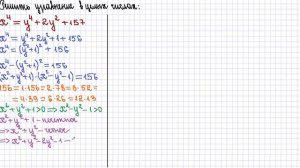 Решить уравнение в целых числах:
x⁴ = y⁴ + 2y² + 157
x⁴ = y⁴ + 2y² + 1 + 156
x⁴ = (y² + 1)² + 156
x⁴ - (y² + 1)² = 156
(x² + y² + 1) · (x² - y² - 1) = 156
156 = 1·156 = 2·78 = 3·52 =
= 4·39 = 6·26 = 12·13
x² + y² + 1 > 0 => x² - y² - 1 > 0
x² + y² + 1 - нечетное
=> x² + y² - четное
=> x² + y² - 2y² - 1 -